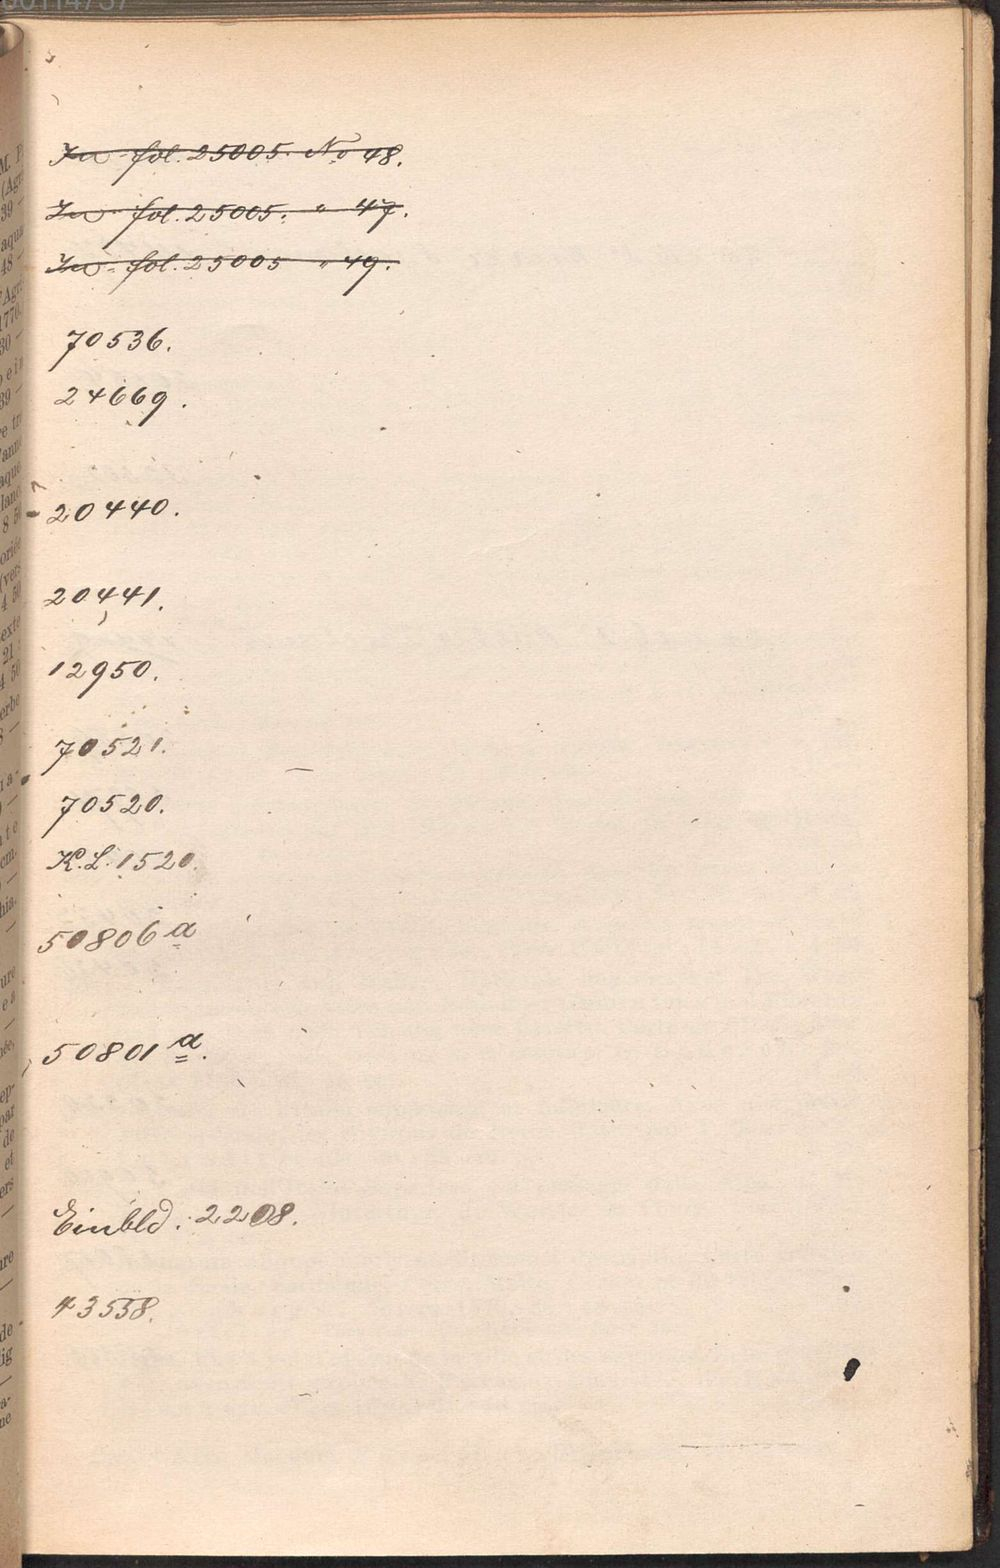 In fol. 25005. No 48.
In fol. 25005. " 47.
In fol. 25005 " 49.
70536.
24669.
20440.
20441.
12950.
70521.
70520.
K.L. 1520.
50806 a
50801 a.
Einbld. 2208.
43538.